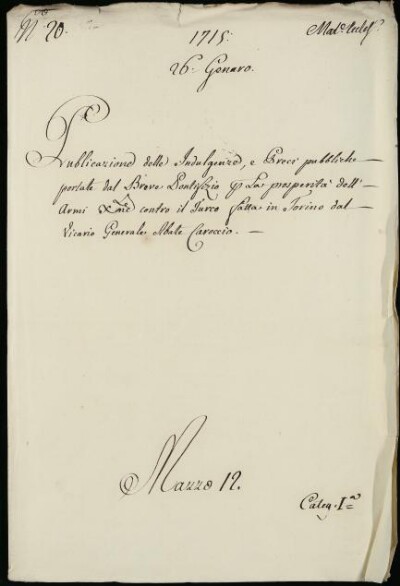 N.º 20.
1715.
26. Genaro.
Mat.e Eccles.e
Publicazione delle Indulgenze, e Preci pubbliche
portate dal Breve Pontifizio p La prosperità dell'
Armi Xane contro il Turco fatta in Torino dal
Vicario Generale Abate Caroccio. —
Mazzo 12.
Categ. I.a